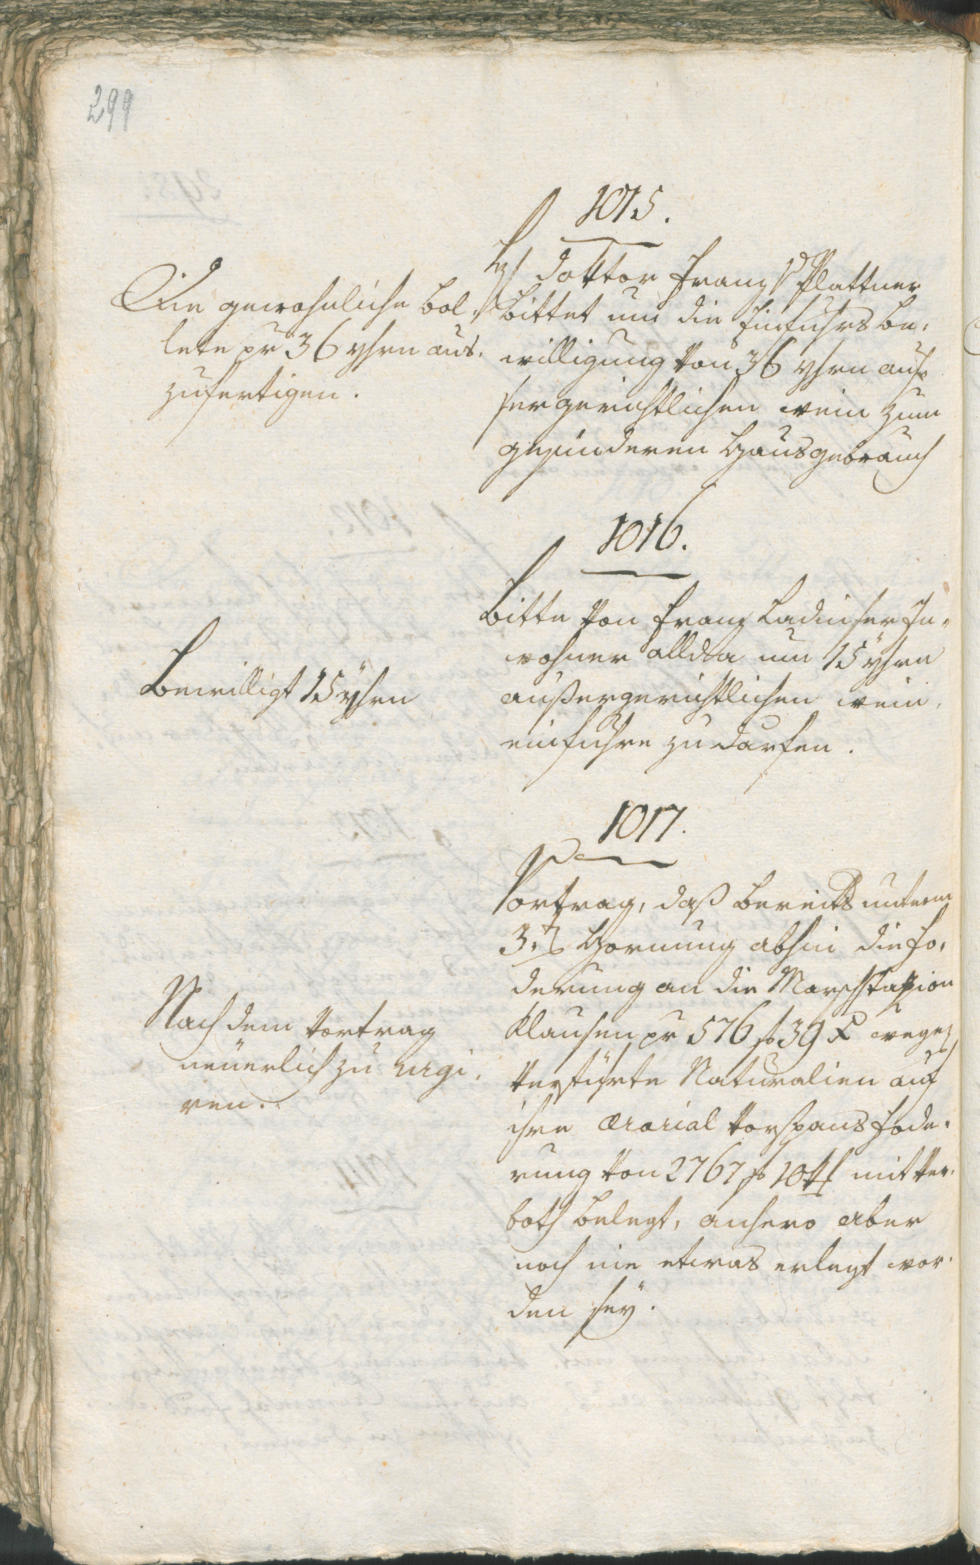 299
1015.
Die gewohnliche Bol-
lete pr 36 yhrn aus-
zufertigen.
H: Docttor Franz v Plattner
bittet um die Einfuhrs be-
willigung von 36 yhrn aus-
sergerichtlichen wein zum
gesünderen Hausgebrauch
1016.
Bewilligt 15 yhrn
Bitte von Franz Ladinser In-
wohner allda um 15 yhrn
außergerichtlichen wein
einführn zu darfen.
1017.
Nach dem Vortrag
neüerlich zu urgi-
ren.
Vortrag, daß bereits unterm
3.t Hornung abhin die Fo-
derung an die Marschstazion
Klausen pr 576 f 39 x wegen
verführte Naturalien auf
ihre ærarial Vorspans Fode-
rung von 2767 f 10 mit Ver-
both belegt, anhero aber
noch nie etwas erlegt wor-
den seÿ.